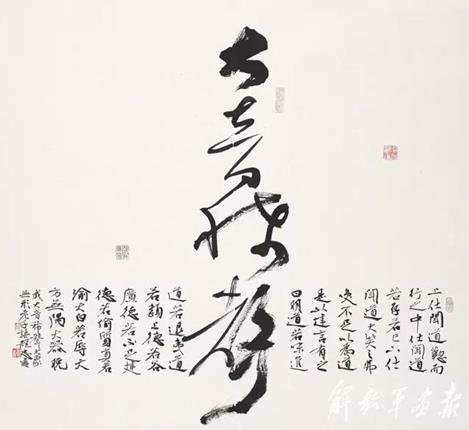 大音希聲
上仕聞道勤而
行之中仕聞道
若存若亡下仕
聞道大笑之弗
笑不足以為道
是以建言有之
曰明道若昧進
道若退夷道
若纇上德若谷
廣德若不足建
德若偷質真若
渝大白若辱大
方無隅大器晚
成大音希聲大象
無形老子
解放军画报